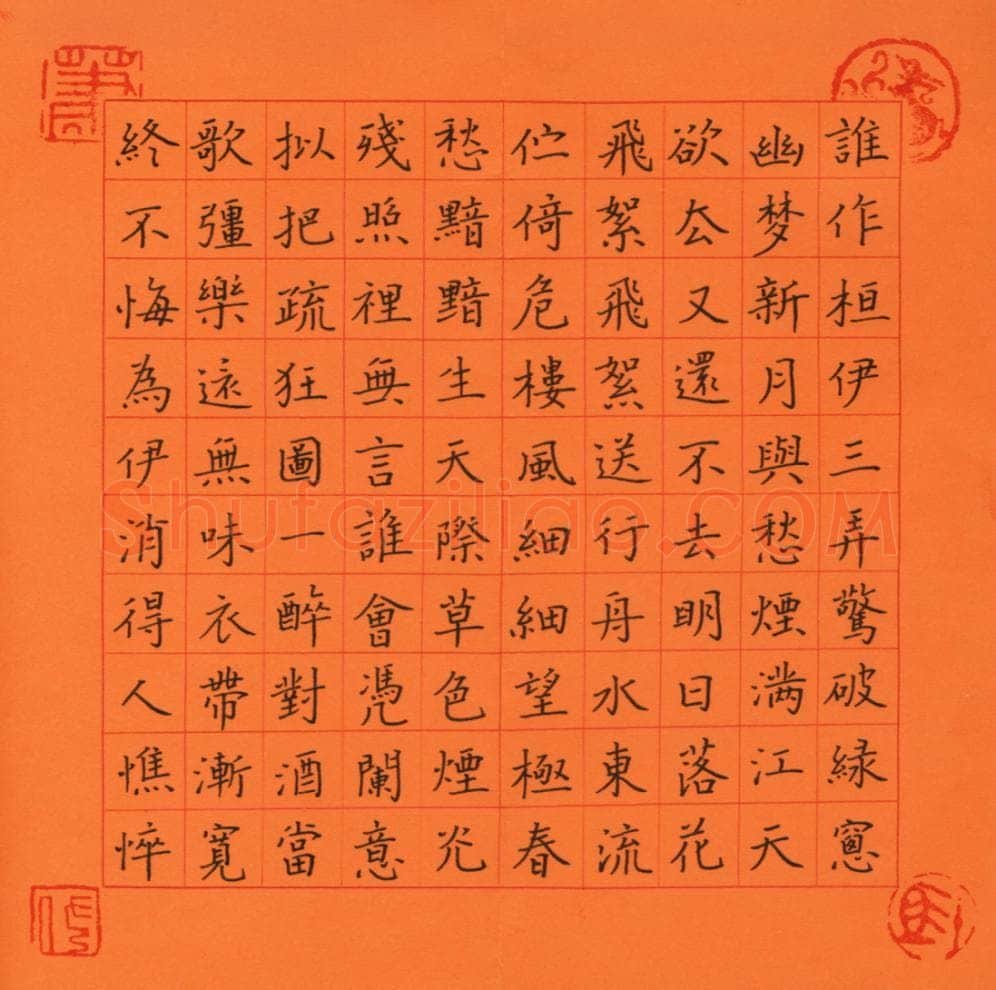 誰作桓伊三弄驚破緑窓
幽梦新月與愁煙满江天
欲厺又還不去明日落花
飛絮飛絮送行舟水東流
伫倚危樓風細細望極春
愁黯黯生天際草色煙光
殘照裡無言誰會凴闌意
拟把疏狂圖一醉對酒當
歌彊樂還無味衣帶漸寬
終不悔為伊消得人憔悴
Shufaziliao.COM